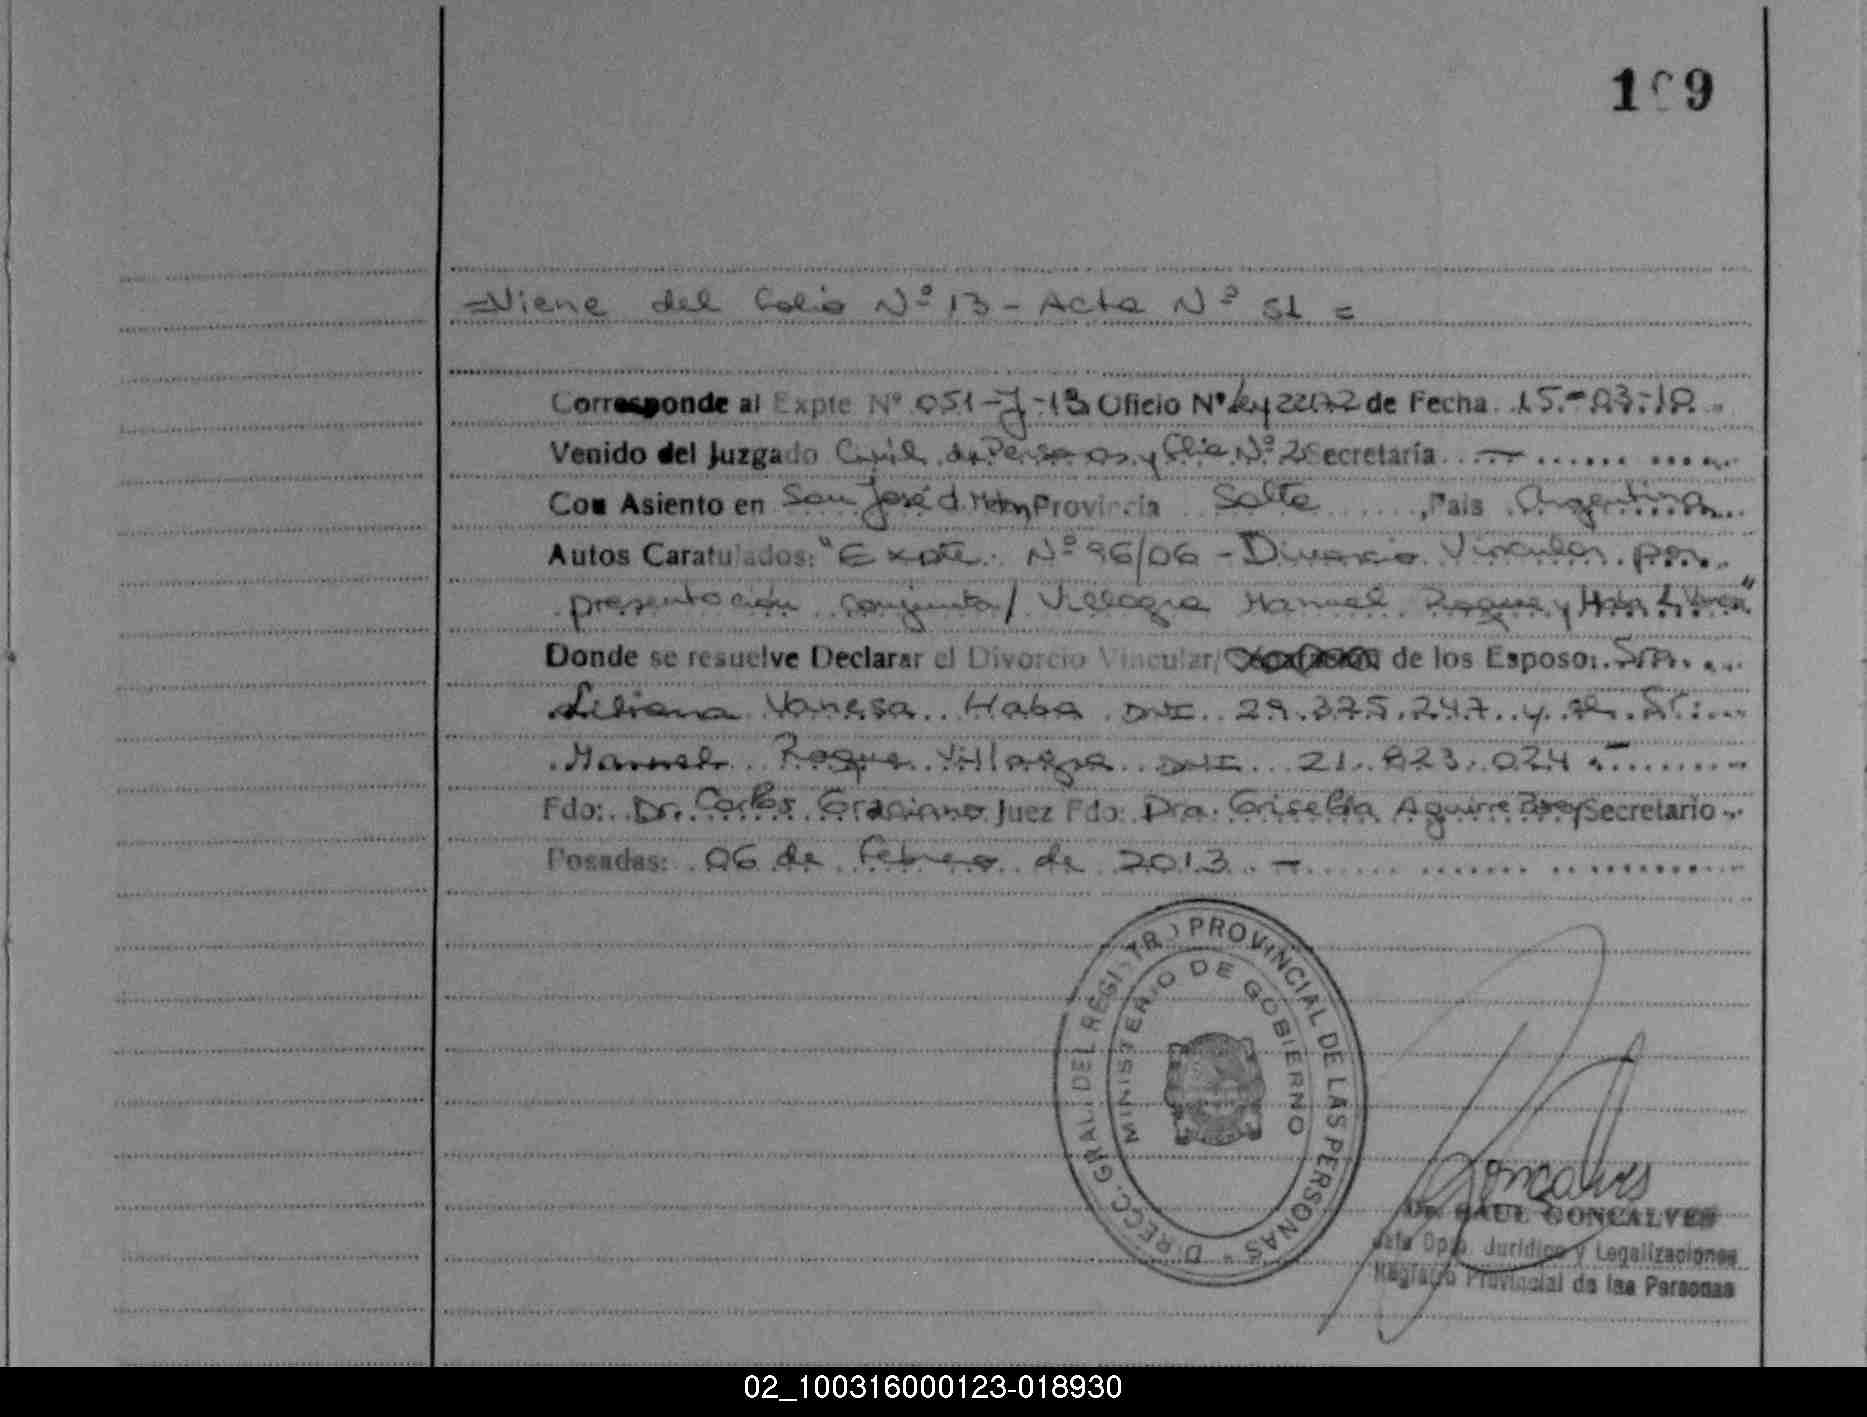 109
=Viene del Folio Nº 13 - Acta Nº 51 =
Corresponde al Expte Nº 051-J-13 Oficio Nº Ley 22172 de Fecha 15-03-10
Venido del Juzgado Civil de Personas y Flia Nº 2 Secretaría —
Con Asiento en San José d. Provincia Salta, Pais Argentina
Autos Caratulados: "Expte. Nº 96/06 - Divorcio Vincular por
presentación conjunta/ Villagra Manuel Roque y Haba
Donde se resuelve Declarar el Divorcio Vincular/ de los Esposo: Sra.
Liliana Vanesa Haba DNI 29.375.247 y el Sr:
Manuel Roque Villagra DNI 21.823.024.-
Fdo: Dr. Carlos Graciano Juez Fdo: Dra. Griselda Aguirre Secretario
Posadas: 06 de febrero de 2013. -
DIRECC. GRAL. DEL REGISTRO PROVINCIAL DE LAS PERSONAS
MINISTERIO DE GOBIERNO
Goncalves
Dr. RAUL GONCALVES
Jefe Dpto. Jurídico y Legalizaciones
Registro Provincial de las Personas
02_100316000123-018930